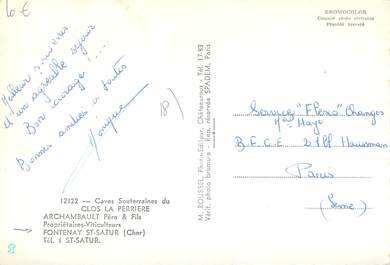 6€
BROMOCOLOR
Couleur photo véritable
Procédé breveté
Meilleur souvenir
d'un agréable séjour
Bon courage !....
Bonnes amitiés à toutes
Monique
(8)
12122 — Caves Souterraines du
CLOS LA PERRIERE
ARCHAMBAULT Père & Fils
Propriétaires-Viticulteurs
FONTENAY ST-SATUR (Cher)
Tél. 1 ST-SATUR.
M. ROUSSEL, Photo-Éditeur, Châteauroux - Tél. 17-83
Vérit. photo bromure - Rep. réservée SPADEM, Paris
Service "Flexo" Changes
B.F.C.E 21 Bd Haussman
Paris
(Seine)